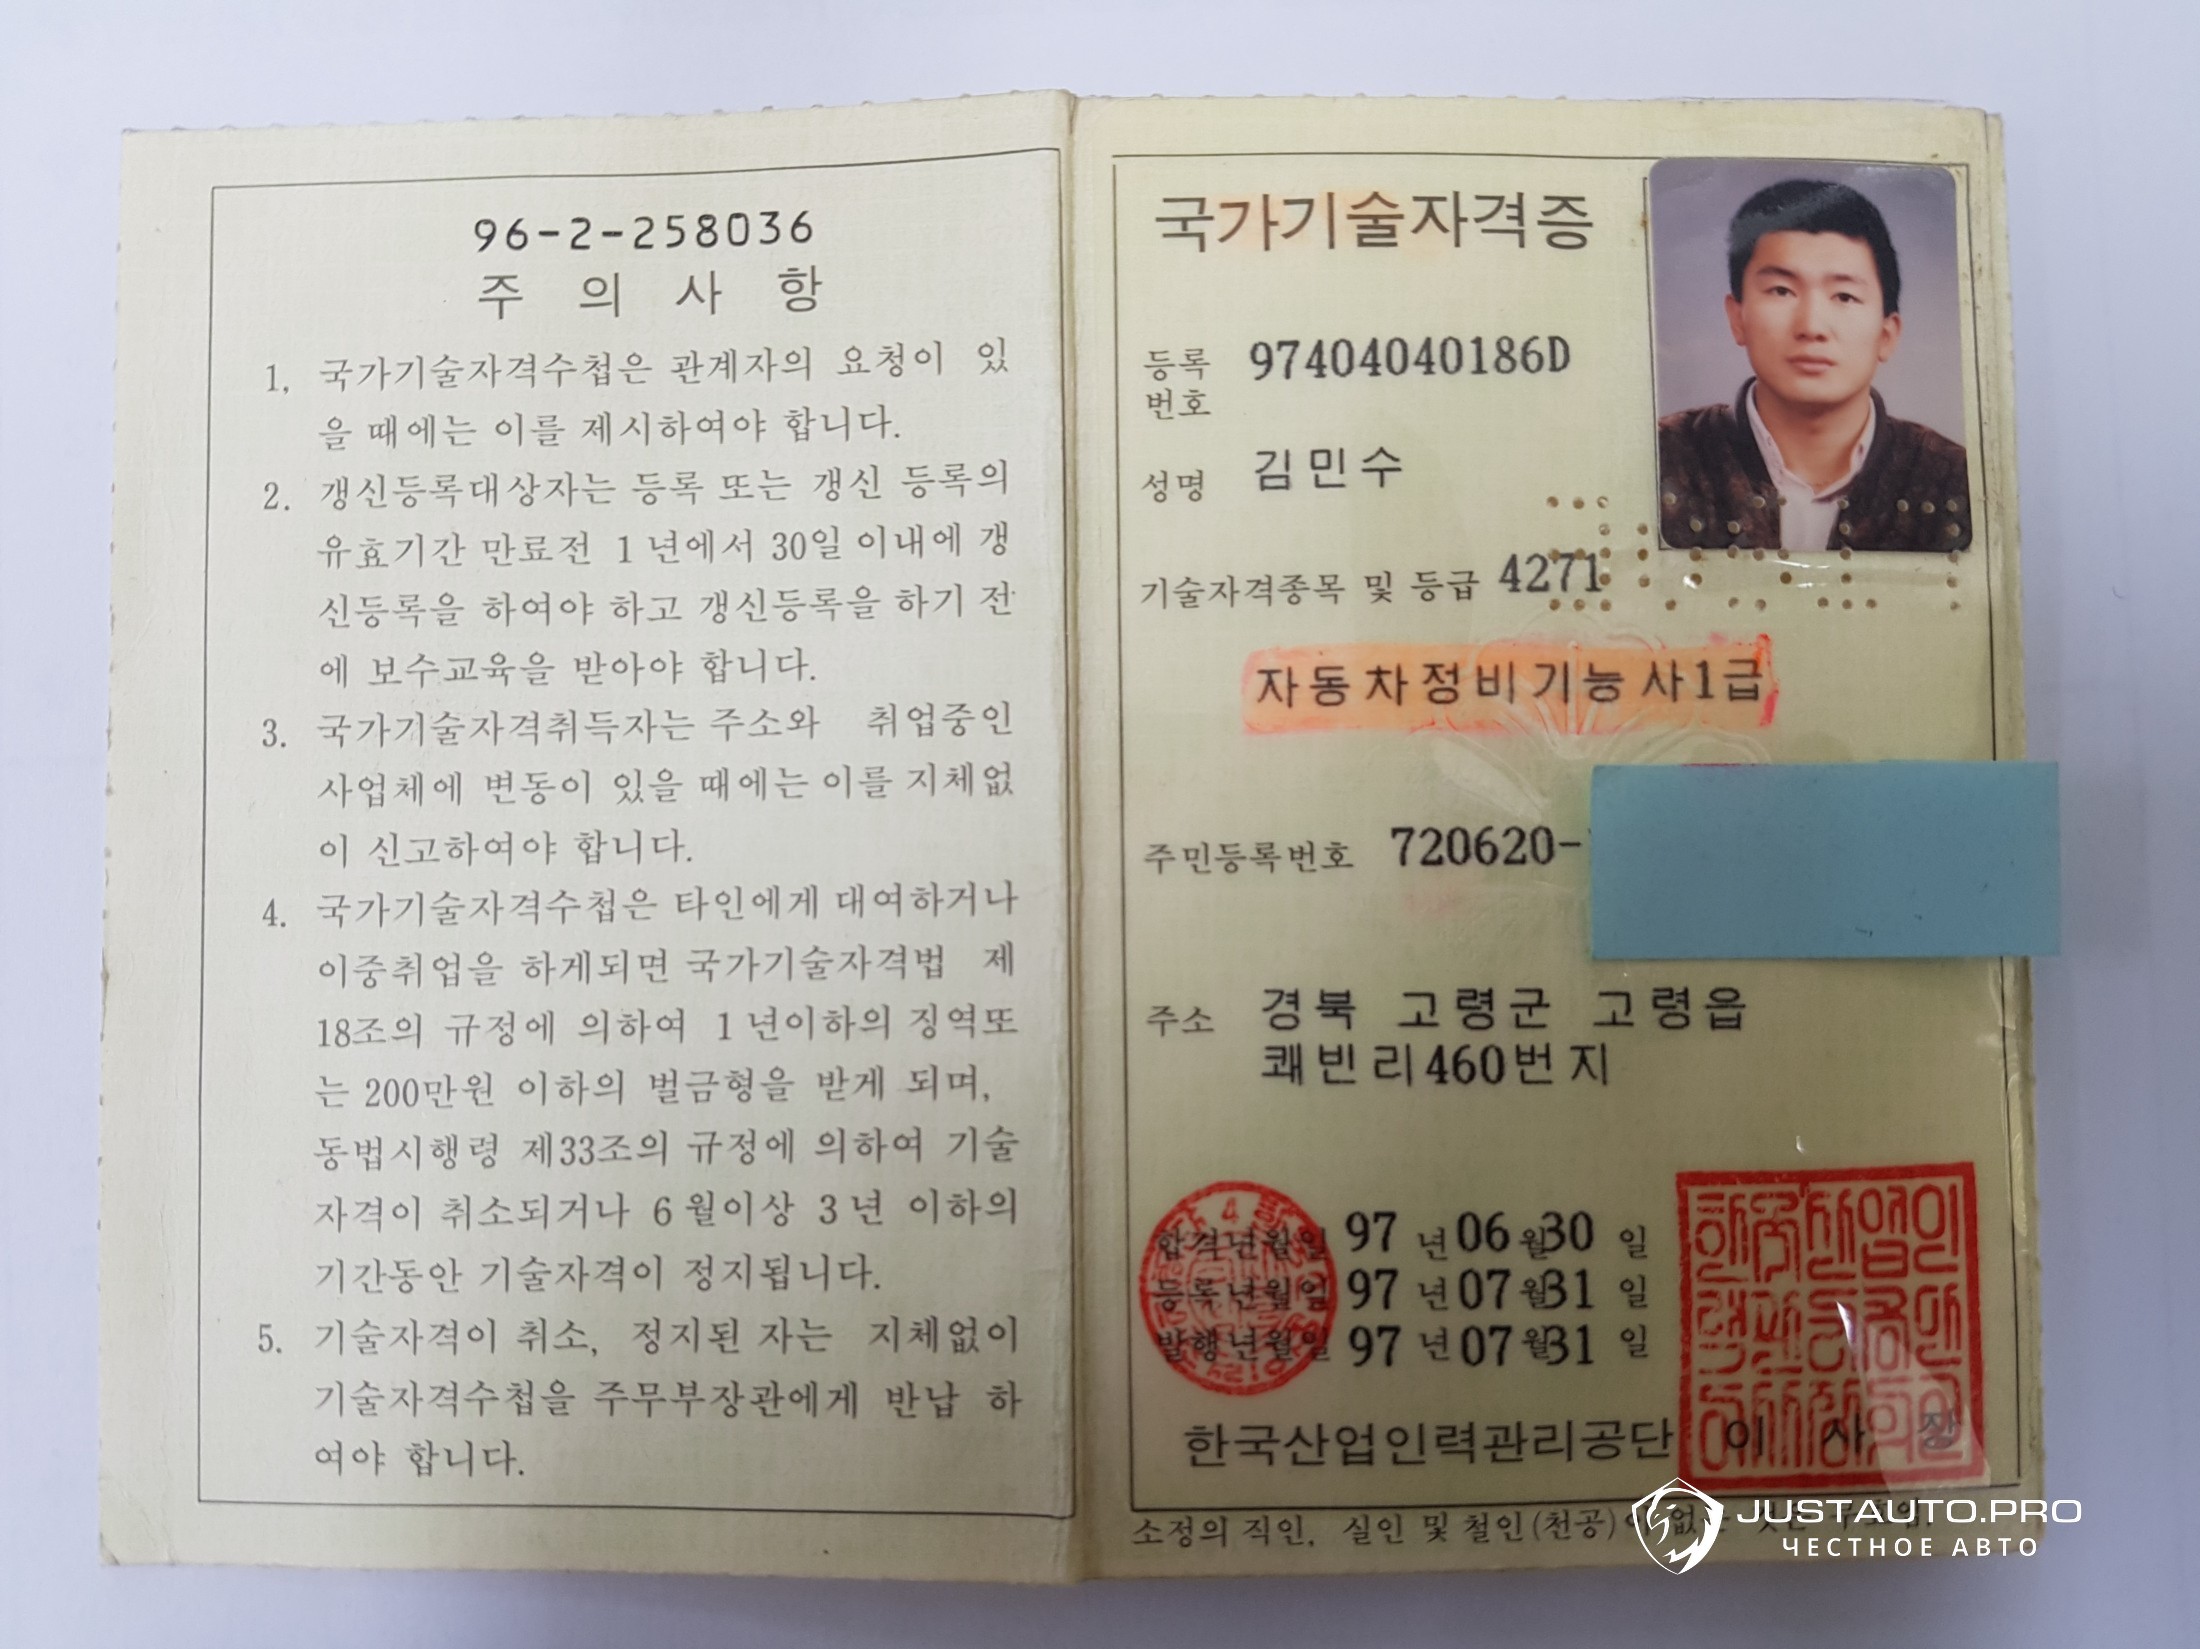 96-2-258036
주 의 사 항
1, 국가기술자격수첩은 관계자의 요청이 있
을 때에는 이를 제시하여야 합니다.
2. 갱신등록대상자는 등록 또는 갱신 등록의
유효기간 만료전 1년에서 30일 이내에 갱
신등록을 하여야 하고 갱신등록을 하기 전
에 보수교육을 받아야 합니다.
3. 국가기술자격취득자는 주소와 취업중인
사업체에 변동이 있을 때에는 이를 지체없
이 신고하여야 합니다.
4. 국가기술자격수첩은 타인에게 대여하거나
이중취업을 하게되면 국가기술자격법 제
18조의 규정에 의하여 1년이하의 징역또
는 200만원 이하의 벌금형을 받게 되며,
동법시행령 제33조의 규정에 의하여 기술
자격이 취소되거나 6월이상 3년 이하의
기간동안 기술자격이 정지됩니다.
5. 기술자격이 취소, 정지된 자는 지체없이
기술자격수첩을 주무부장관에게 반납 하
여야 합니다.
국가기술자격증
등록번호 97404040186D
성명 김민수
기술자격종목 및 등급 4271
자동차정비기능사1급
주민등록번호 720620-
주소 경북 고령군 고령읍
쾌빈리460번지
합격년월일 97 년 06 월 30 일
등록년월일 97 년 07 월 31 일
발행년월일 97 년 07 월 31 일
한국산업인력관리공단 이 사 장
소정의 직인, 실인 및 철인(천공)이
JUSTAUTO.PRO
ЧЕСТНОЕ АВТО